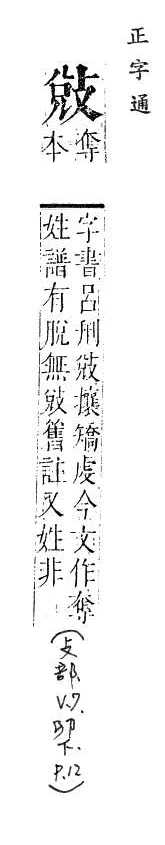 正字通
敓
奪
本
字書呂刑敓攘矯虔今文作奪
姓譜有脫無敓舊註又姓非
(攴部, V.7, 卯下, P.12)